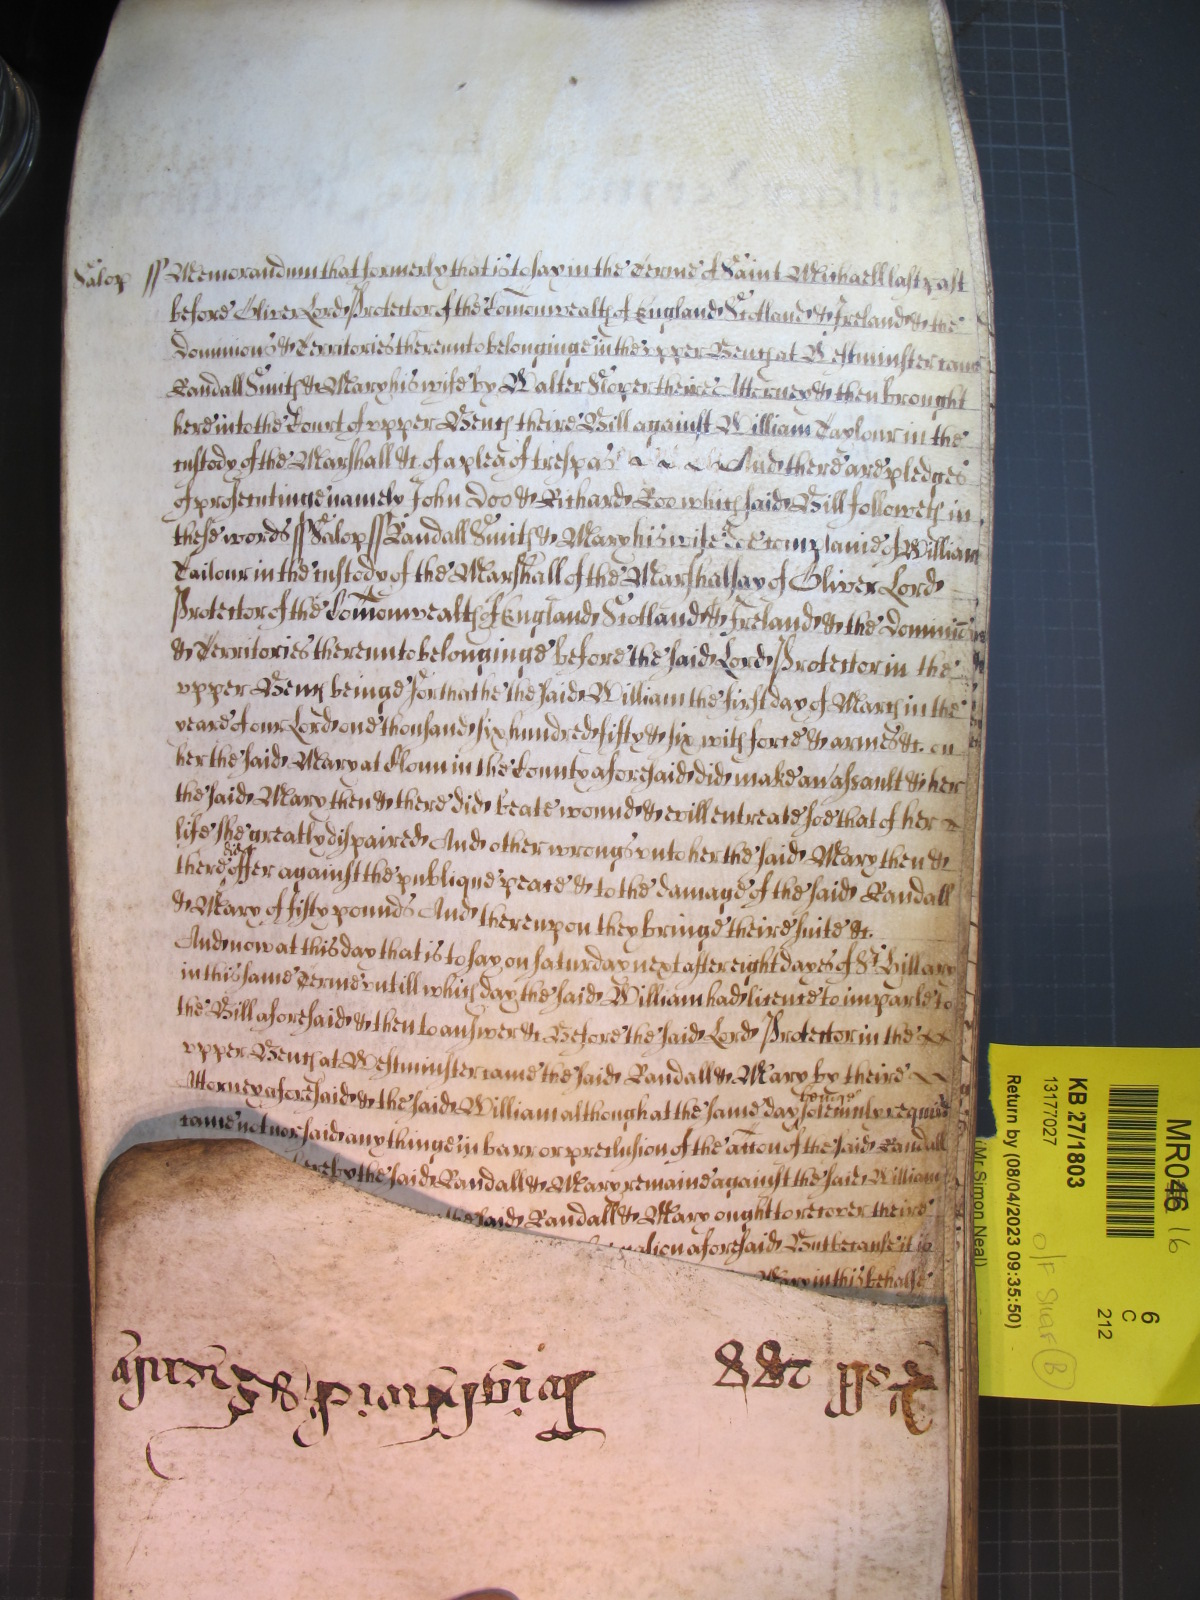 Salop ss Memorandum that formerly that is to say in the Terme of Saint Michaell last past
before Oliver Lord Protector of the Comonwealth of England Scotland & Ireland & the
Dominions & Territories thereunto belonginge in the upper Bench at Westminster came
Randall Smith & Mary his wife by Walter their Attorney & then brought
here into the Court of upper Bench theire Bill against William Taylour in the
custody of the Marshall &c. of a plea of trespas And there are pledges
of prosecutinge namely John Doo & Richard Roo which said Bill followeth in
these words ss Salop ss Randall Smith & Mary his wife complaine of William
Tailour in the custody of the Marshall of the Marshalsay of Oliver Lord
Protector of the Comonwealth of England Scotland & Ireland & the Dominions
& Territories thereunto belonginge before the said Lord Protector in the
upper Bench beinge for that he the said William the first day of March in the
yeare of our Lord one thousand six hundred fifty & six with force & armes &c. on
her the said Mary at Clonn in the County aforesaid did make an assault & her
the said Mary then & there did beate wound & evill entreate soe that of her
life she greatly dispaired And other wrongs unto her the said Mary then &
there did offer against the publique peace & to the damage of the said Randall
& Mary of fifty pounds And thereupon they bringe theire suite &c.
And now at this day that is to say on Saturday next after eight dayes of St. Hillary
in this same Terme untill which day the said William had licence to imparle to
the Bill aforesaid & then to answer &c Before the said Lord Protector in the
upper Bench at Westminster came the said Randall & Mary by theire
Attorney aforesaid & the said William although at the same day beinge solemnly required
came not nor said any thinge in barr or preclusion of the accion of the said Randall
whereby the said Randall & Mary remaine against the said William
the said Randall & Mary ought to recover theire
aforesaid But because it is
Mary in this behalfe
Roll 288
MR046 16
6
C
212
KB 27/1803
13177027
O/F Shaf B
Return by (08/04/2023 09:35:50)
(Mr Simon Neal)